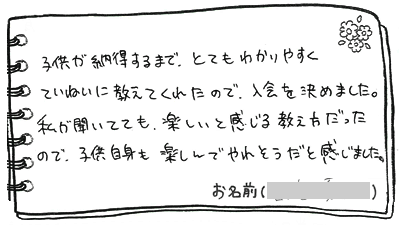 子供が納得するまで、とてもわかりやすく
ていねいに教えてくれたので、入会を決めました。
私が聞いてても、楽しいと感じる教え方だった
ので、子供自身も楽しんでやれそうだと感じました。
お名前( )